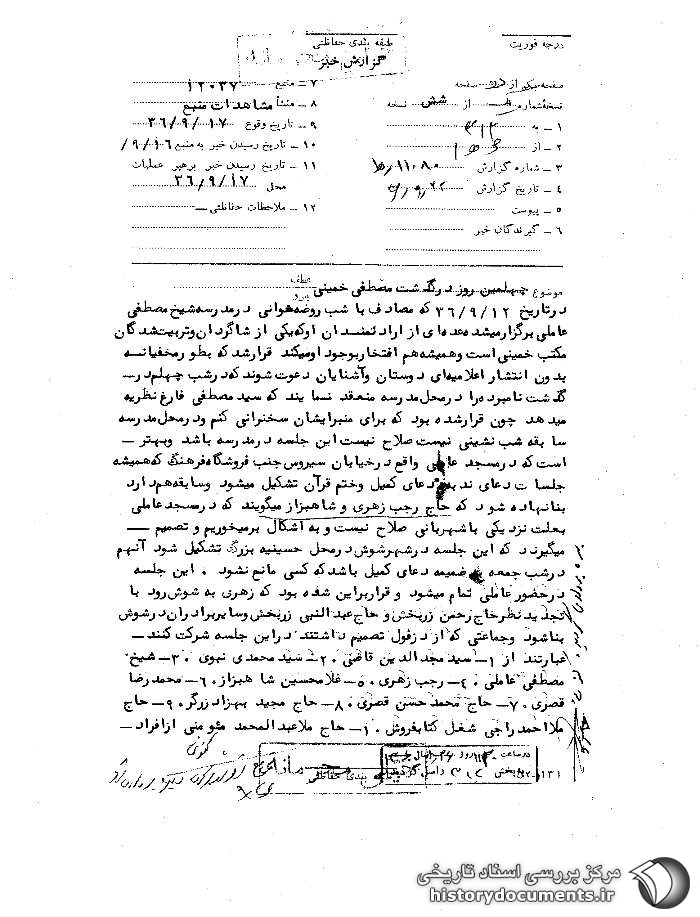 درجه فوریت
طبقه بندی حفاظتی
گزارش خبر
صفحه یکم از دو صفحه
نسخه شماره از شش نسخه
۱ ـ به ۳۱۲
۲ ـ از
۳ ـ شماره گزارش
۴ ـ تاریخ گزارش
۵ ـ پیوست
۶ ـ گیرندگان خبر
۷ ـ منبع ۱۲۰۳۷
۸ ـ منشأ مشاهدات منبع
۹ ـ تاریخ وقوع ۳۶/۹/۱۷
۱۰ ـ تاریخ رسیدن خبر به منبع ۹/۱۶/
۱۱ ـ تاریخ رسیدن خبر برهبر عملیات
محل ۳۶/۹/۱۷
۱۲ ـ ملاحظات حفاظتی ـ
موضوع چهلمین روز درگذشت مصطفی خمینی
درتاریخ ۳۶/۹/۱۲ که مصادف با شب روضه‌خوانی درمدرسه‌شیخ‌مصطفی
عاملی برگزارمیشدعده‌ای از ارادتمندان اوکه‌یکی ازشاگردان‌وتربیت‌شدگان
مکتب خمینی است وهمیشه‌هم افتخاربوجود اومیکند قرارشدکه بطورمخفیانه
بدون انتشار اعلامیه‌ای دوستان وآشنایان دعوت شوندکه‌درشب چهلم‌در
گذشت نامبرده‌را درمحل‌مدرسه منعقد نمایند که سیدمصطفی فارغ نظریه
میدهد چون قرارشده بود که برای منبرایشان سخنرانی کنم ودرمحل‌مدرسه
سابقه شب نشینی نیست صلاح نیست این جلسه درمدرسه باشد وبهتر ـ
است که درمسجد عاملی واقع درخیابان سیروس جنب فروشگاه‌فرهنگ که‌همیشه
جلسات دعای ندبه ودعای کمیل وختم قرآن تشکیل میشود وسابقه‌هم‌دارد
بنانهاده شود که حاج رجب زهری و شاهبزاز میگویند که درمسجدعاملی
بعلت نزدیکی باشهربانی صلاح نیست و به اشکال برمیخوریم و تصمیم ـ
میگیرند که این جلسه درشهرشوش درمحل حسینیه بزرگ تشکیل شود آنهم
درشب جمعه به ضمیمه دعای کمیل باشدکه کسی مانع نشود . این جلسه
درحضور عاملی تمام میشود و قراربراین شده بود که زهری به شوش‌رود با
تجدید نظرحاج‌رحمن زربخش‌و حاج‌عبدالنبی زربخش‌وسایربرادران‌درشوش
بناشود وجماعتی که ازدزفول تصمیم داشتند دراین جلسه شرکت کنند ـ
عبارتند از ۱ـ سیدمجدالدین قاضی ۲ـ سیدمحمدی نبوی . ۳ـ شیخ
مصطفی عاملی . ۴ـ رجب زهری . ۵ـ غلامحسین شاهبزاز . ۶ـ محمدرضا
قصری . ۷ـ حاج محمدحسن قصری . ۸ـ حاج مجید بهزادزرگر . ۹ـ حاج
ملااحمدراجی شغل کتابفروش . ۱۰ـ حاج ملاعبدالمحمد مئومنی ازافراد ـ
طبقه بندی حفاظتی
مرکز بررسی اسناد تاریخی
historydocuments.ir